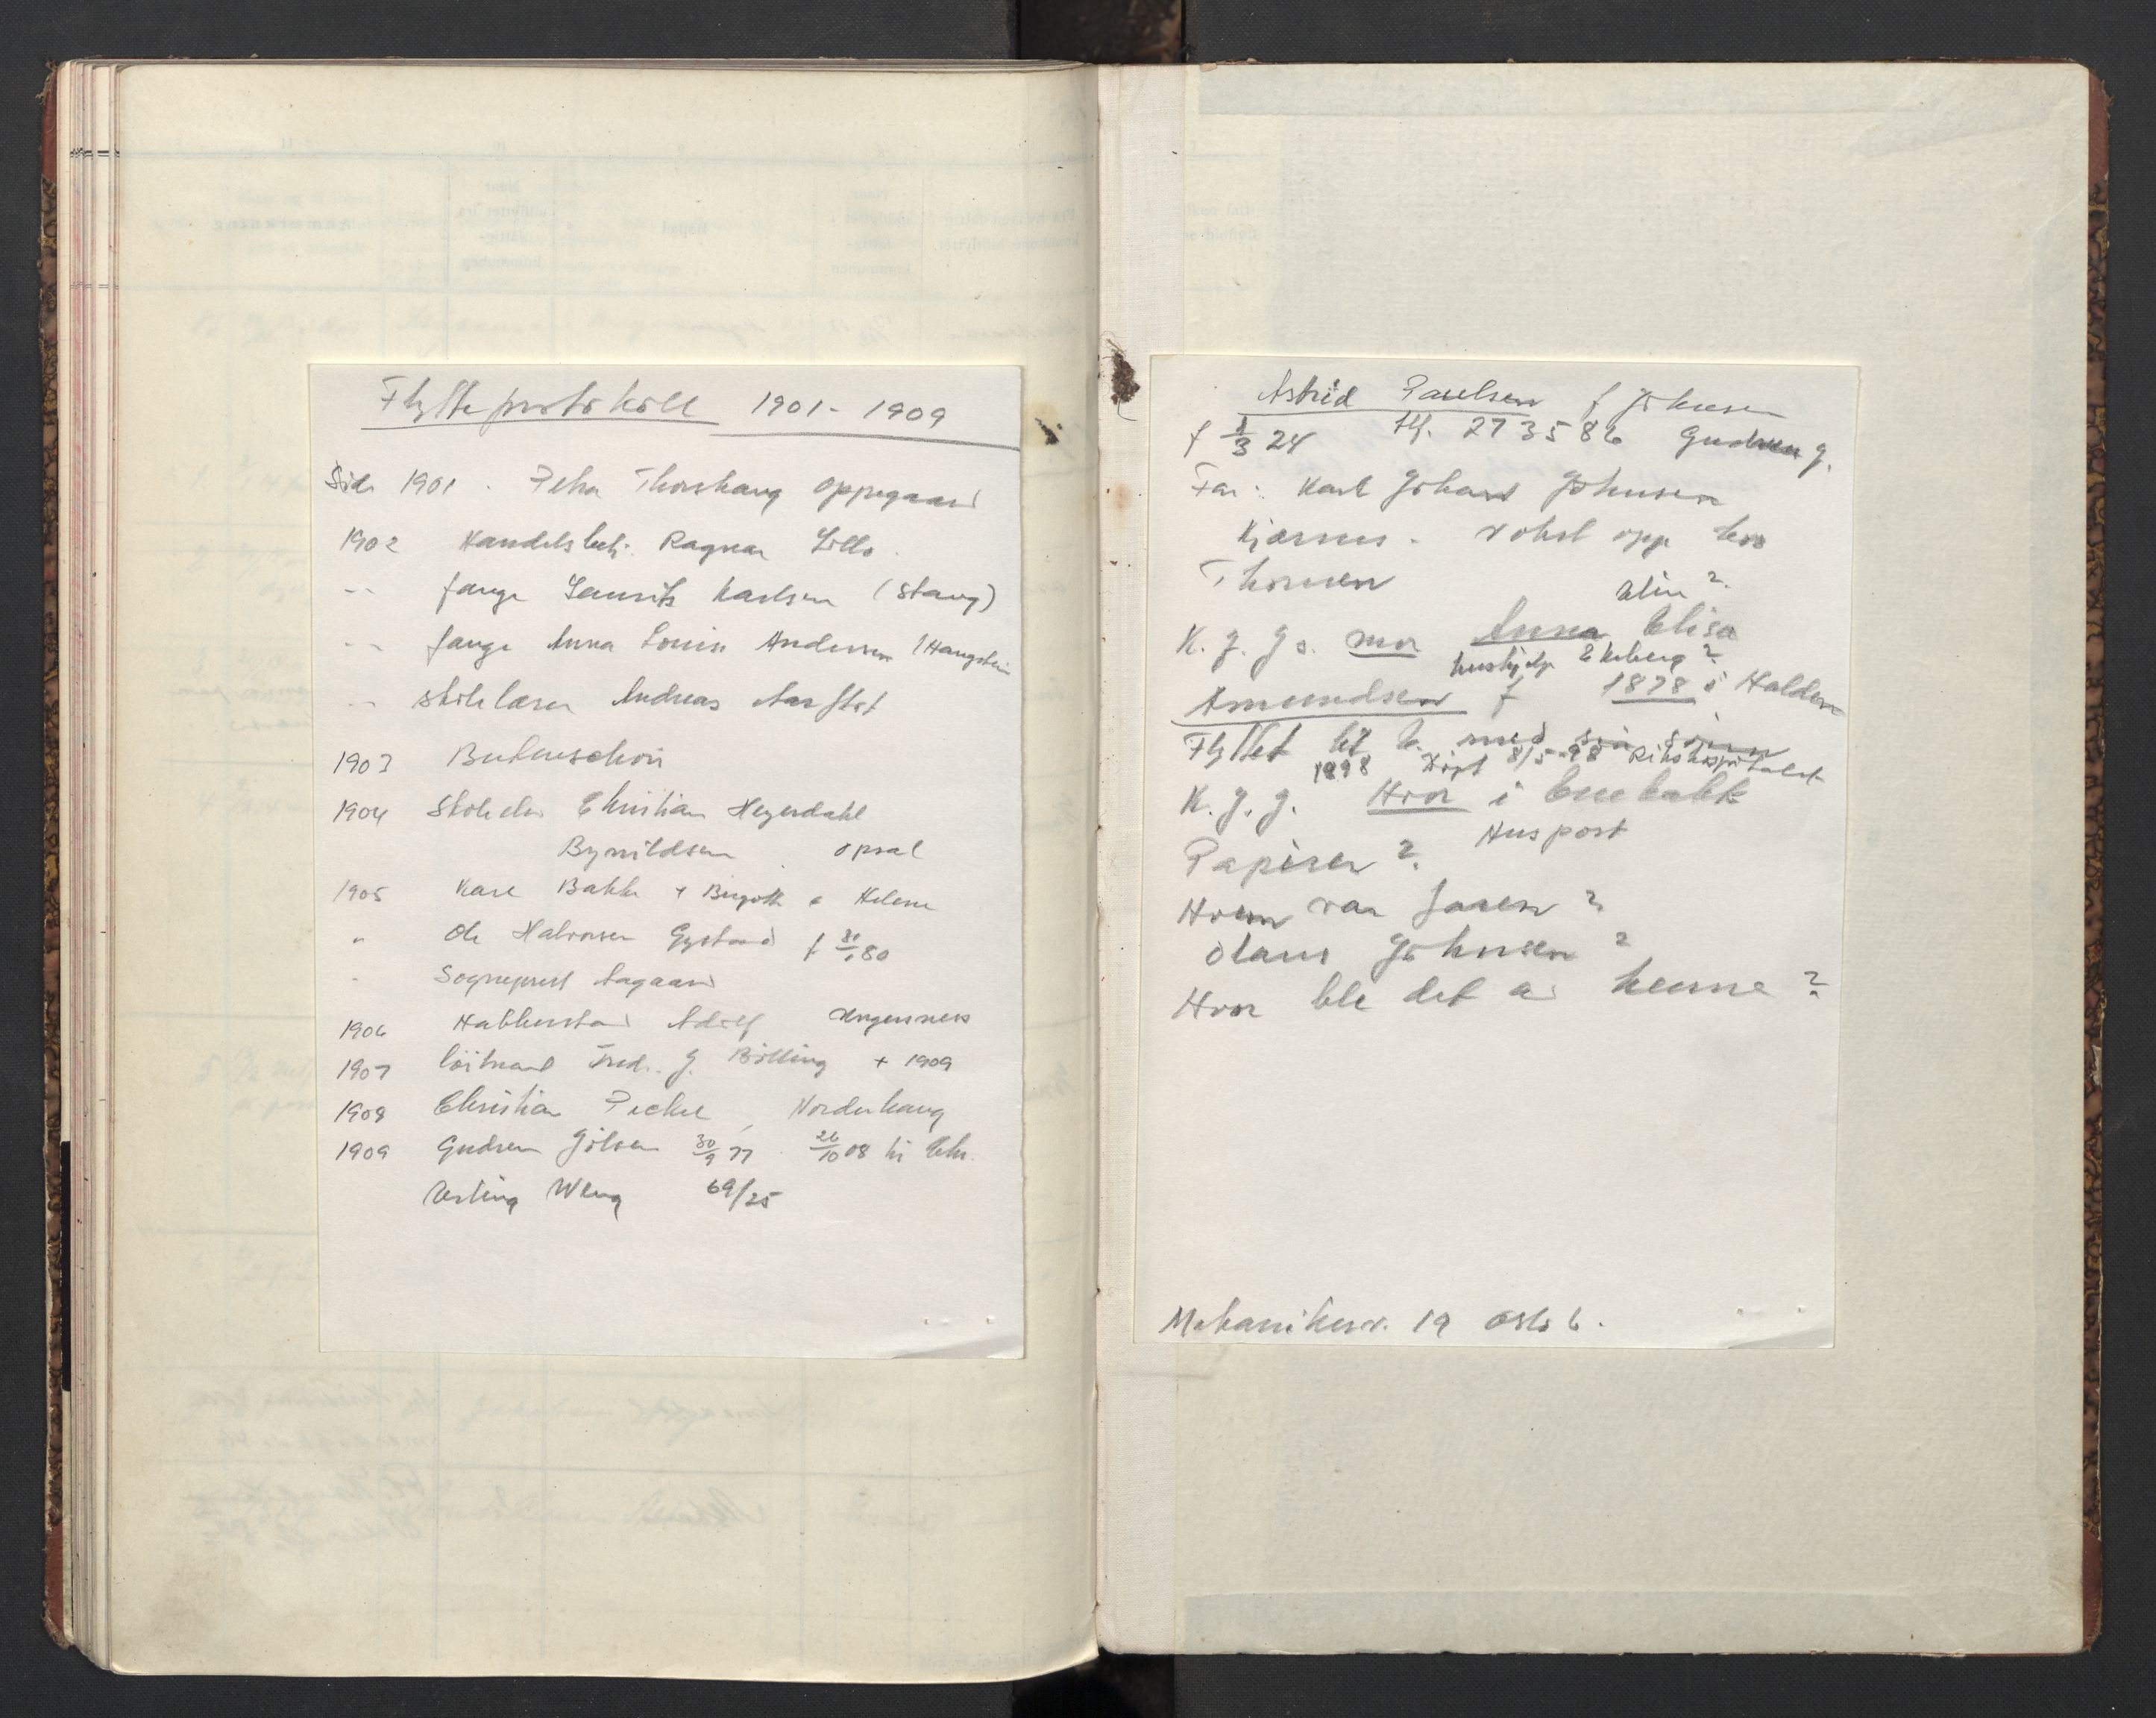 Flytteprotokoll 1901-1909
Side 1901. Peter Thorshaug Oppegaard
1902 Handelsbetj. Ragnar Lillo.
-- fange Lauritz Karlsen (Stang)
-- fange Anna Louise Andersen (Haugstein
-- skolelærer Andreas Aarflot
1903 Butenschøn
1904 Skoleelev Christian Heyerdahl
Bynildsen . Opsal
1905 Kare Bakke + Birgitte + Helene
" Ole Halvorsen Gystad f 80
- Sogneprest Aagaard
1906 Hakkestad Adolf Ungersness
1907 löitnant Fred. J. Bölling + 1909
1908 Christian Pechel, Norderhaug
1909 Gudrun Jölsen 30/9 77 26/10 08 til Chr.
Esting Weng 69/25
Astrid Paulsen f Johnsen
f 1/3 24 tlf. 273586 Gudrun J.
Far: Karl Johans Johnsen
Kjærnes - vokst opp hos
Thomsen
Elin?
K. J. Js. mor Anna Elisa
hushjelp Ekeberg?
Amundsen f 1878 i Halden
Flyttet til E. med sin sönn
1898 döpt 8/5-98 Rikshospitalet
K. J. J. Hvor i Enebakk
Huspost
Papirer?
Hvem var faren?
Olaus Johnsen?
Hvor ble det av henne?
Mekanikerv. 19 Oslo 6.